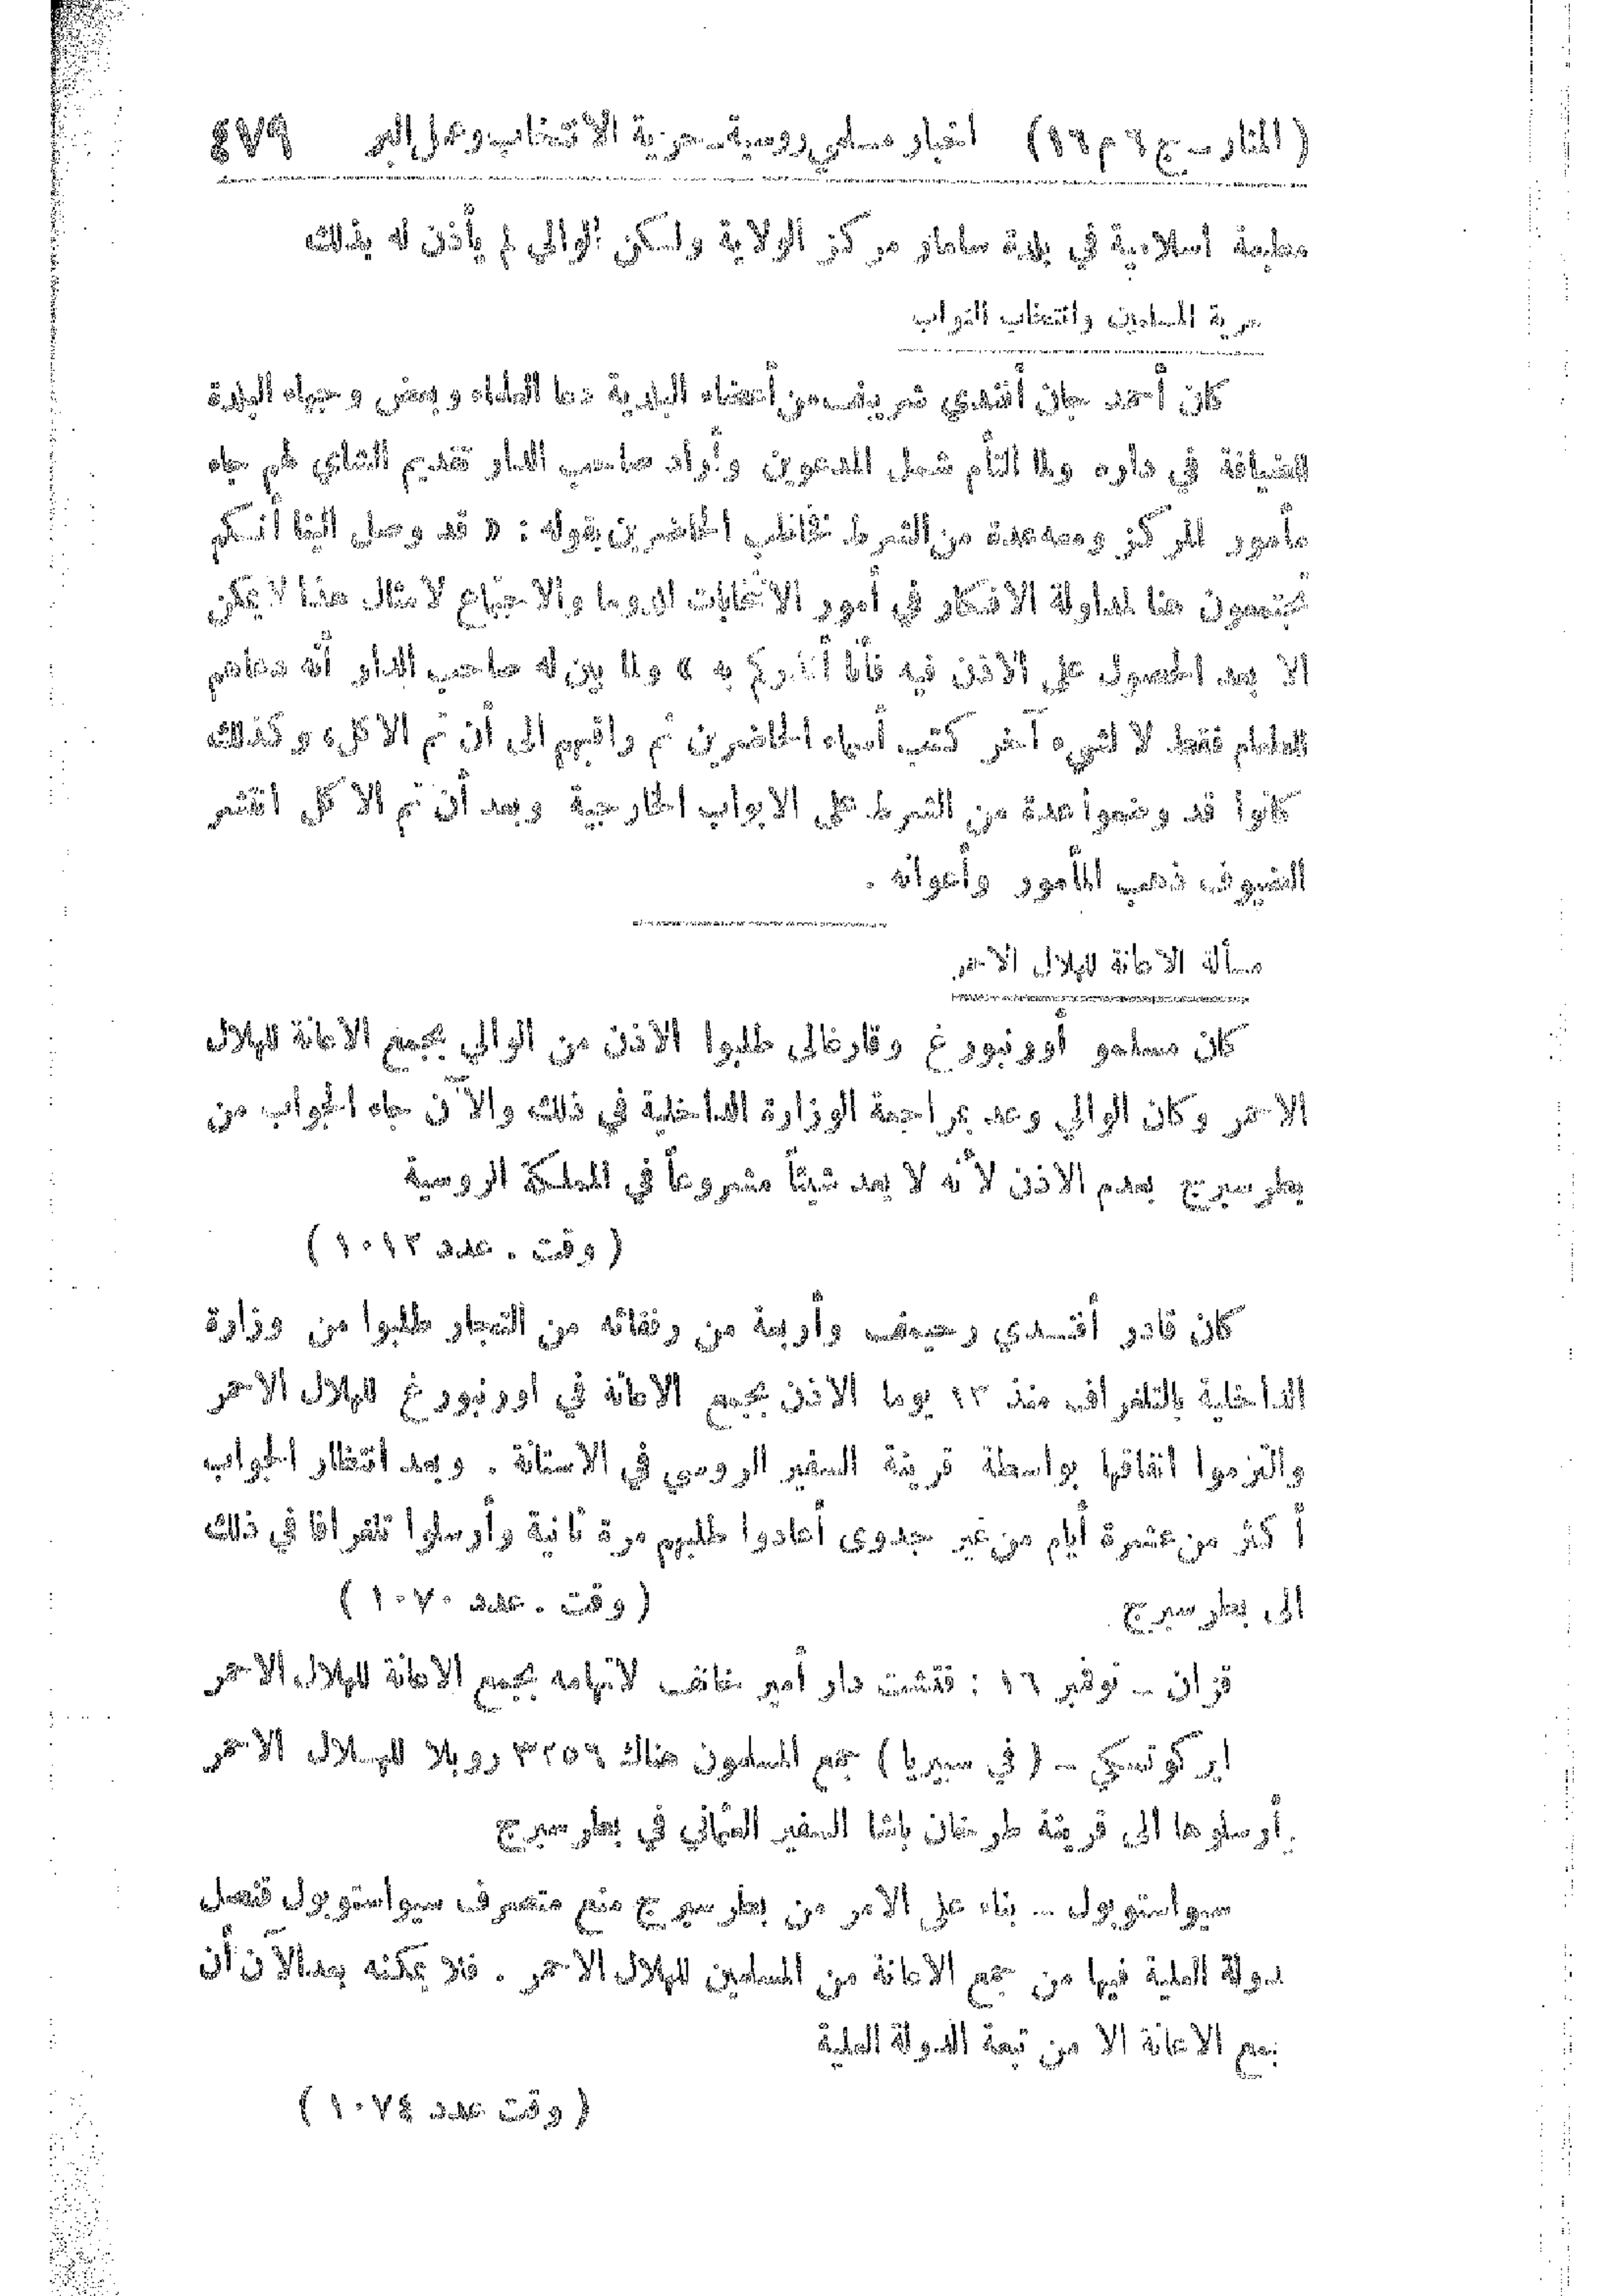 (المنار – ج ٦ م ١٦) اخبار مسلمي روسية – حرية الانتخاب وعمل البر ٤٧٩
مطبعة اسلامية في بلدة سامار مركز الولاية ولكن الوالي لم يأذن له بذلك
حرية المسلمين وانتخاب النواب
كان أحمد جان أفندي شريف من أعضاء البلدية دعا العلماء وبعض وجهاء البلدة
للضيافة في داره ولما التأم شمل المدعوين وأراد صاحب الدار تقديم الشاي لهم جاء
مأمور المركز ومعه عدة من الشرط فخاطب الحاضرين بقوله : « قد وصل الينا أنكم
تجتمعون هنا لمداولة الافكار في أمور الانتخابات الدوما والاجتماع لامثال هذا لا يمكن
الا بعد الحصول على الاذن فيه فأنا أنذركم به » ولما بين له صاحب الدار أنه دعاهم
للطعام فقط لا لشيء آخر كتب أسماء الحاضرين ثم راقبهم الى أن تم الاكل، وكذلك
كانوا قد وضعوا عدة من الشرط على الابواب الخارجية وبعد أن تم الاكل انتشر
الضيوف ذهب المأمور وأعوانه .
مسألة الاعانة للهلال الاحمر
كان مسلمو أورنبورغ وقارغالى طلبوا الاذن من الوالي بجمع الاعانة للهلال
الاحمر وكان الوالي وعد بمراجعة الوزارة الداخلية في ذلك والآن جاء الجواب من
بطرسبرج بعدم الاذن لأنه لا يعد شيئاً مشروعاً في المملكة الروسية
(وقت . عدد ١٠١٢)
كان قادر أفندي رحيموف وأربعة من رفقائه من التجار طلبوا من وزارة
الداخلية بالتلغراف منذ ١٢ يوما الاذن بجمع الاعانة في اورنبورغ للهلال الاحمر
والتزموا انفاقها بواسطة قرينة السفير الروسي في الاستانة . وبعد انتظار الجواب
أكثر من عشرة أيام من غير جدوى أعادوا طلبهم مرة ثانية وأرسلوا تلغرافا في ذلك
الى بطرسبرج (وقت . عدد ١٠٧٠)
قزان – نوفمبر ١٦ : فتشت دار أمير خانف لاتهامه بجمع الاعانة للهلال الاحمر
ايركوتسكي – (في سبيريا) جمع المسلمون هناك ٣٢٥٦ روبلا للهلال الاحمر
أرسلوها الى قرينة طرخان باشا السفير العثماني في بطرسبرج
سيواستوبول – بناء على الامر من بطرسبرج منع متصرف سيواستوبول قنصل
لدولة العلية فيها من جمع الاعانة من المسلمين للهلال الاحمر . فلا يمكنه بعد الآن أن
يجمع الاعانة الا من تبعة الدولة العلية
(وقت عدد ١٠٧٤)